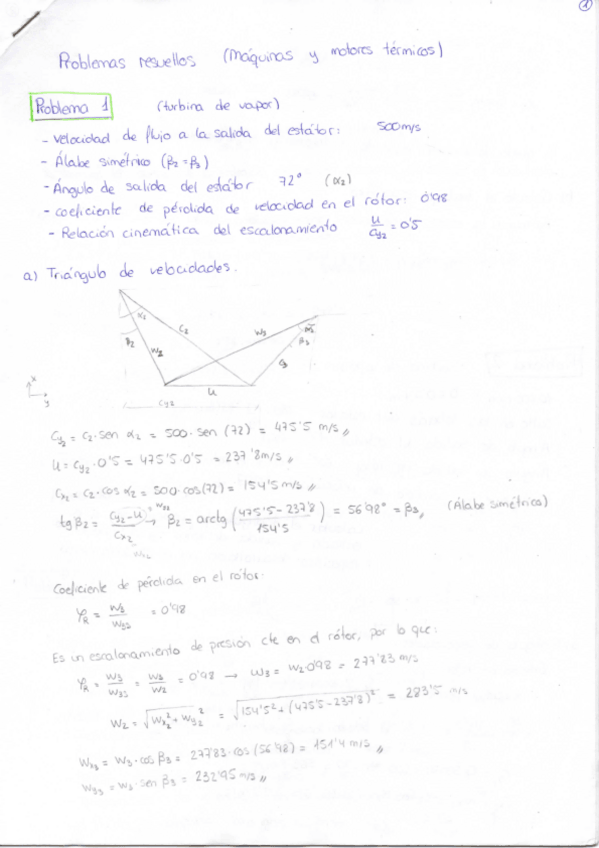 1
Problemas resueltos (Máquinas y motores térmicos)
Problema 1 (turbina de vapor)
- Velocidad de flujo a la salida del estátor: 500 m/s
- Álabe simétrico (β2=β3)
- Ángulo de salida del estátor 72° (α2)
- coeficiente de pérdida de velocidad en el rótor: 0'98
- Relación cinemática del escalonamiento u/Cy2 = 0'5
a) Triángulo de velocidades.
α2 C2 W3
β2 W2 β3
C3
u
x
y Cy2
Cy2 = C2·sen α2 = 500·sen (72) = 475'5 m/s //
u = Cy2·0'5 = 475'5·0'5 = 237'8 m/s //
Cx2 = C2·cos α2 = 500·cos(72) = 154'5 m/s //
tg β2 = (Cy2-u)/Cx2 → β2 = arctg ((475'5-237'8)/154'5) = 56'98° = β3, (Álabe simétrico)
Coeficiente de pérdida en el rótor:
φR = W3/W3s = 0'98
Es un escalonamiento de presión cte en el rótor, por lo que:
φR = W3/W3s = W3/W2 = 0'98 → W3 = W2·0'98 = 277'83 m/s
W2 = √(Wx2² + Wy2²) = √(154'5² + (475'5-237'8)²) = 283'5 m/s
Wx3 = W3·cos β3 = 277'83·cos (56'98) = 151'4 m/s //
Wy3 = W3·sen β3 = 232'95 m/s //